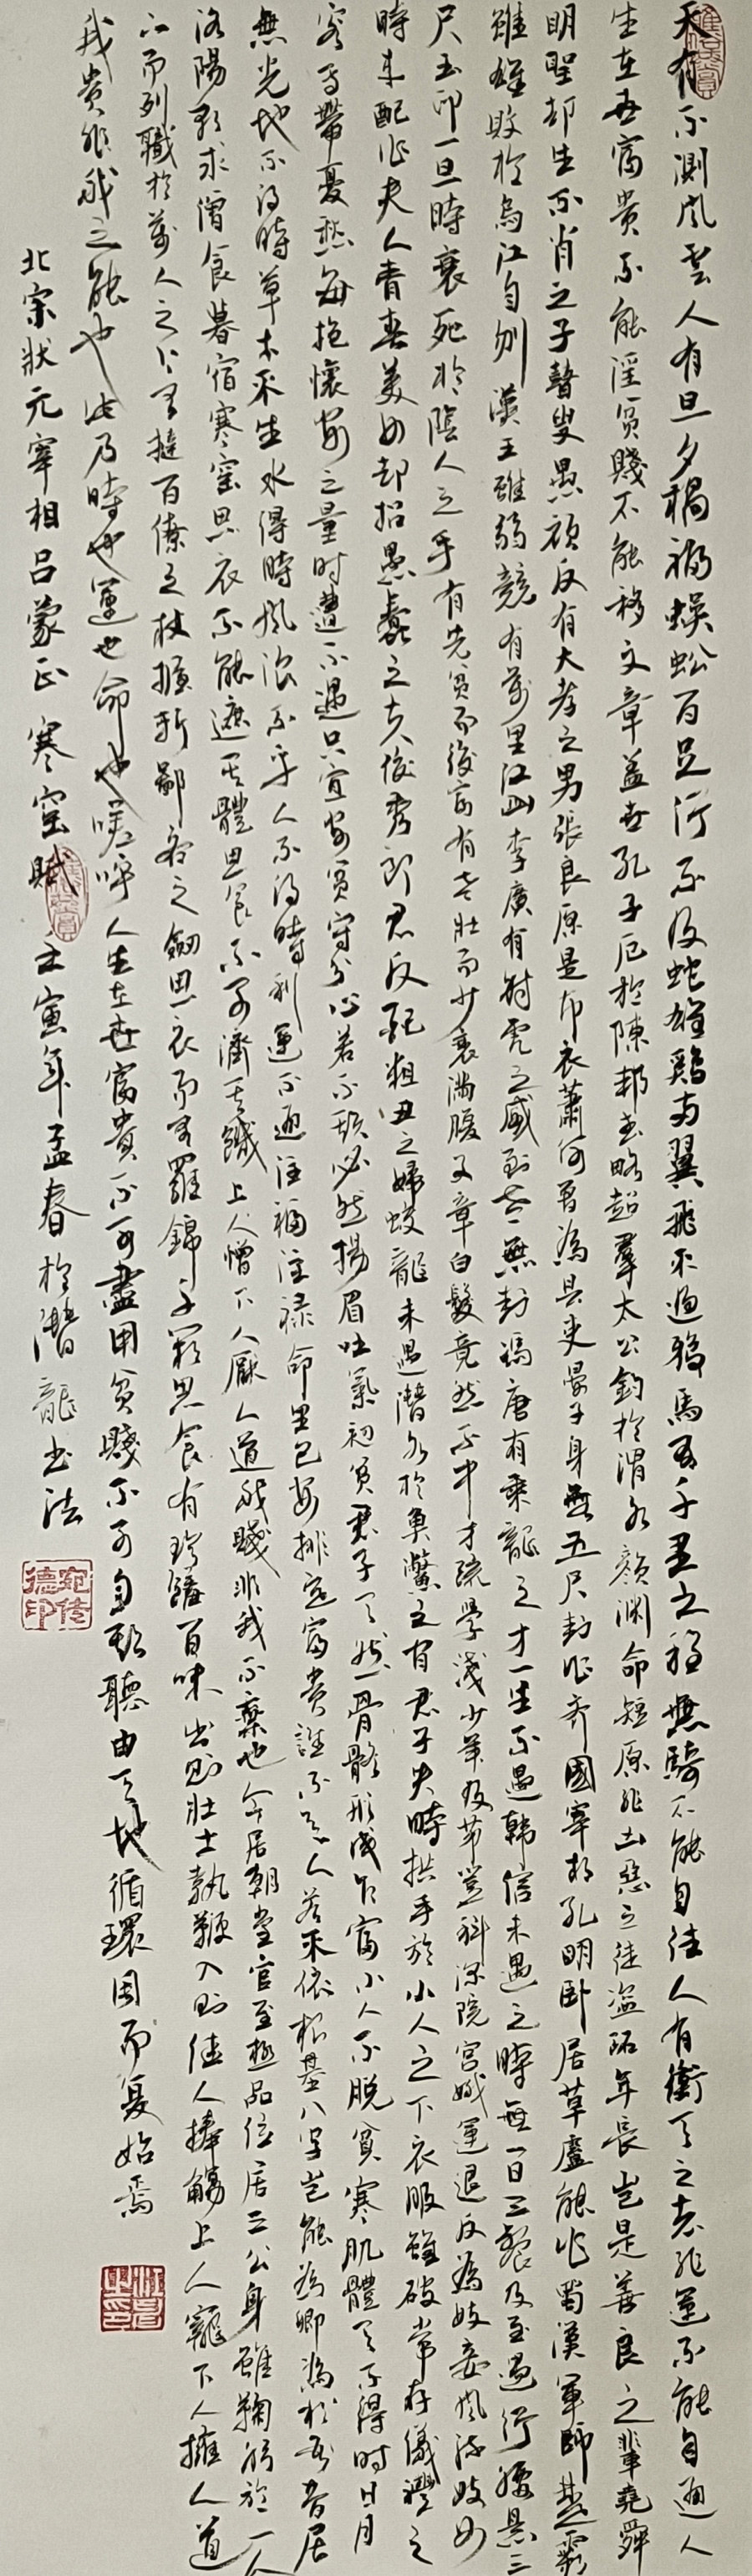 天有不測風雲人有旦夕禍福蜈蚣百足行不及蛇雄雞兩翼飛不過鴉馬有千里之程無騎不能自往人有衝天之志非運不能自通人
生在世富貴不能淫貧賤不能移文章蓋世孔子厄於陳邦武略超羣太公釣於渭水顏淵命短原非凶惡之徒盜跖年長豈是善良之輩堯舜
明聖却生不肖之子瞽叟愚頑反有大孝之男張良原是布衣蕭何曾為縣吏晏子身無五尺封作齊國宰相孔明臥居草廬能作蜀漢軍師楚霸
雖雄敗於烏江自刎漢王雖弱竟有萬里江山李廣有射虎之威到老無封馮唐有乘龍之才一生不遇韓信未遇之時無一日三餐及至遇行腰懸三
尺玉印一旦時衰死於陰人之手有先貧而後富有老壯而少衰滿腹文章白髮竟然不中才疏學淺少年及第登科深院宮娥運退反為妓妾風流妓女
時來配作夫人青春美女却招愚蠢之夫俊秀郎君反配粗丑之婦蛟龍未遇潛水於魚鱉之間君子失時拱手於小人之下衣服雖破常存儀禮之
容面帶憂愁每抱懷安之量时遭不遇只宜安貧守分心若不欺必然揚眉吐氣初貧君子天然骨骼形成乍富小人不脫貧寒肌體天不得時日月
無光地不得時草木不生水得時風浪不平人不得時利運不通注福注祿命里已安排定富貴誰不欲人若不依根基八字豈能為卿為相吾昔居
洛陽朝求僧食暮宿寒窑思衣不能遮其體思食不可濟其饑上人憎下人厭人道我賤非我不棄也今居朝堂官至極品位居三公身雖鞠躬於一人
下而列職於萬人之上有撻百僚之杖擁斬鄙吝之劍思衣而有羅錦千箱思食有珍饈百味出則壯士執鞭入則佳人捧觴上人寵下人擁人道
我貴非我之能也此乃時也運也命也嗟呼人生在世富貴不可盡用貧賤不可自欺聽由天地循環周而复始焉
北宋狀元宰相呂蒙正寒窑賦 壬寅年孟春於潛龍书法